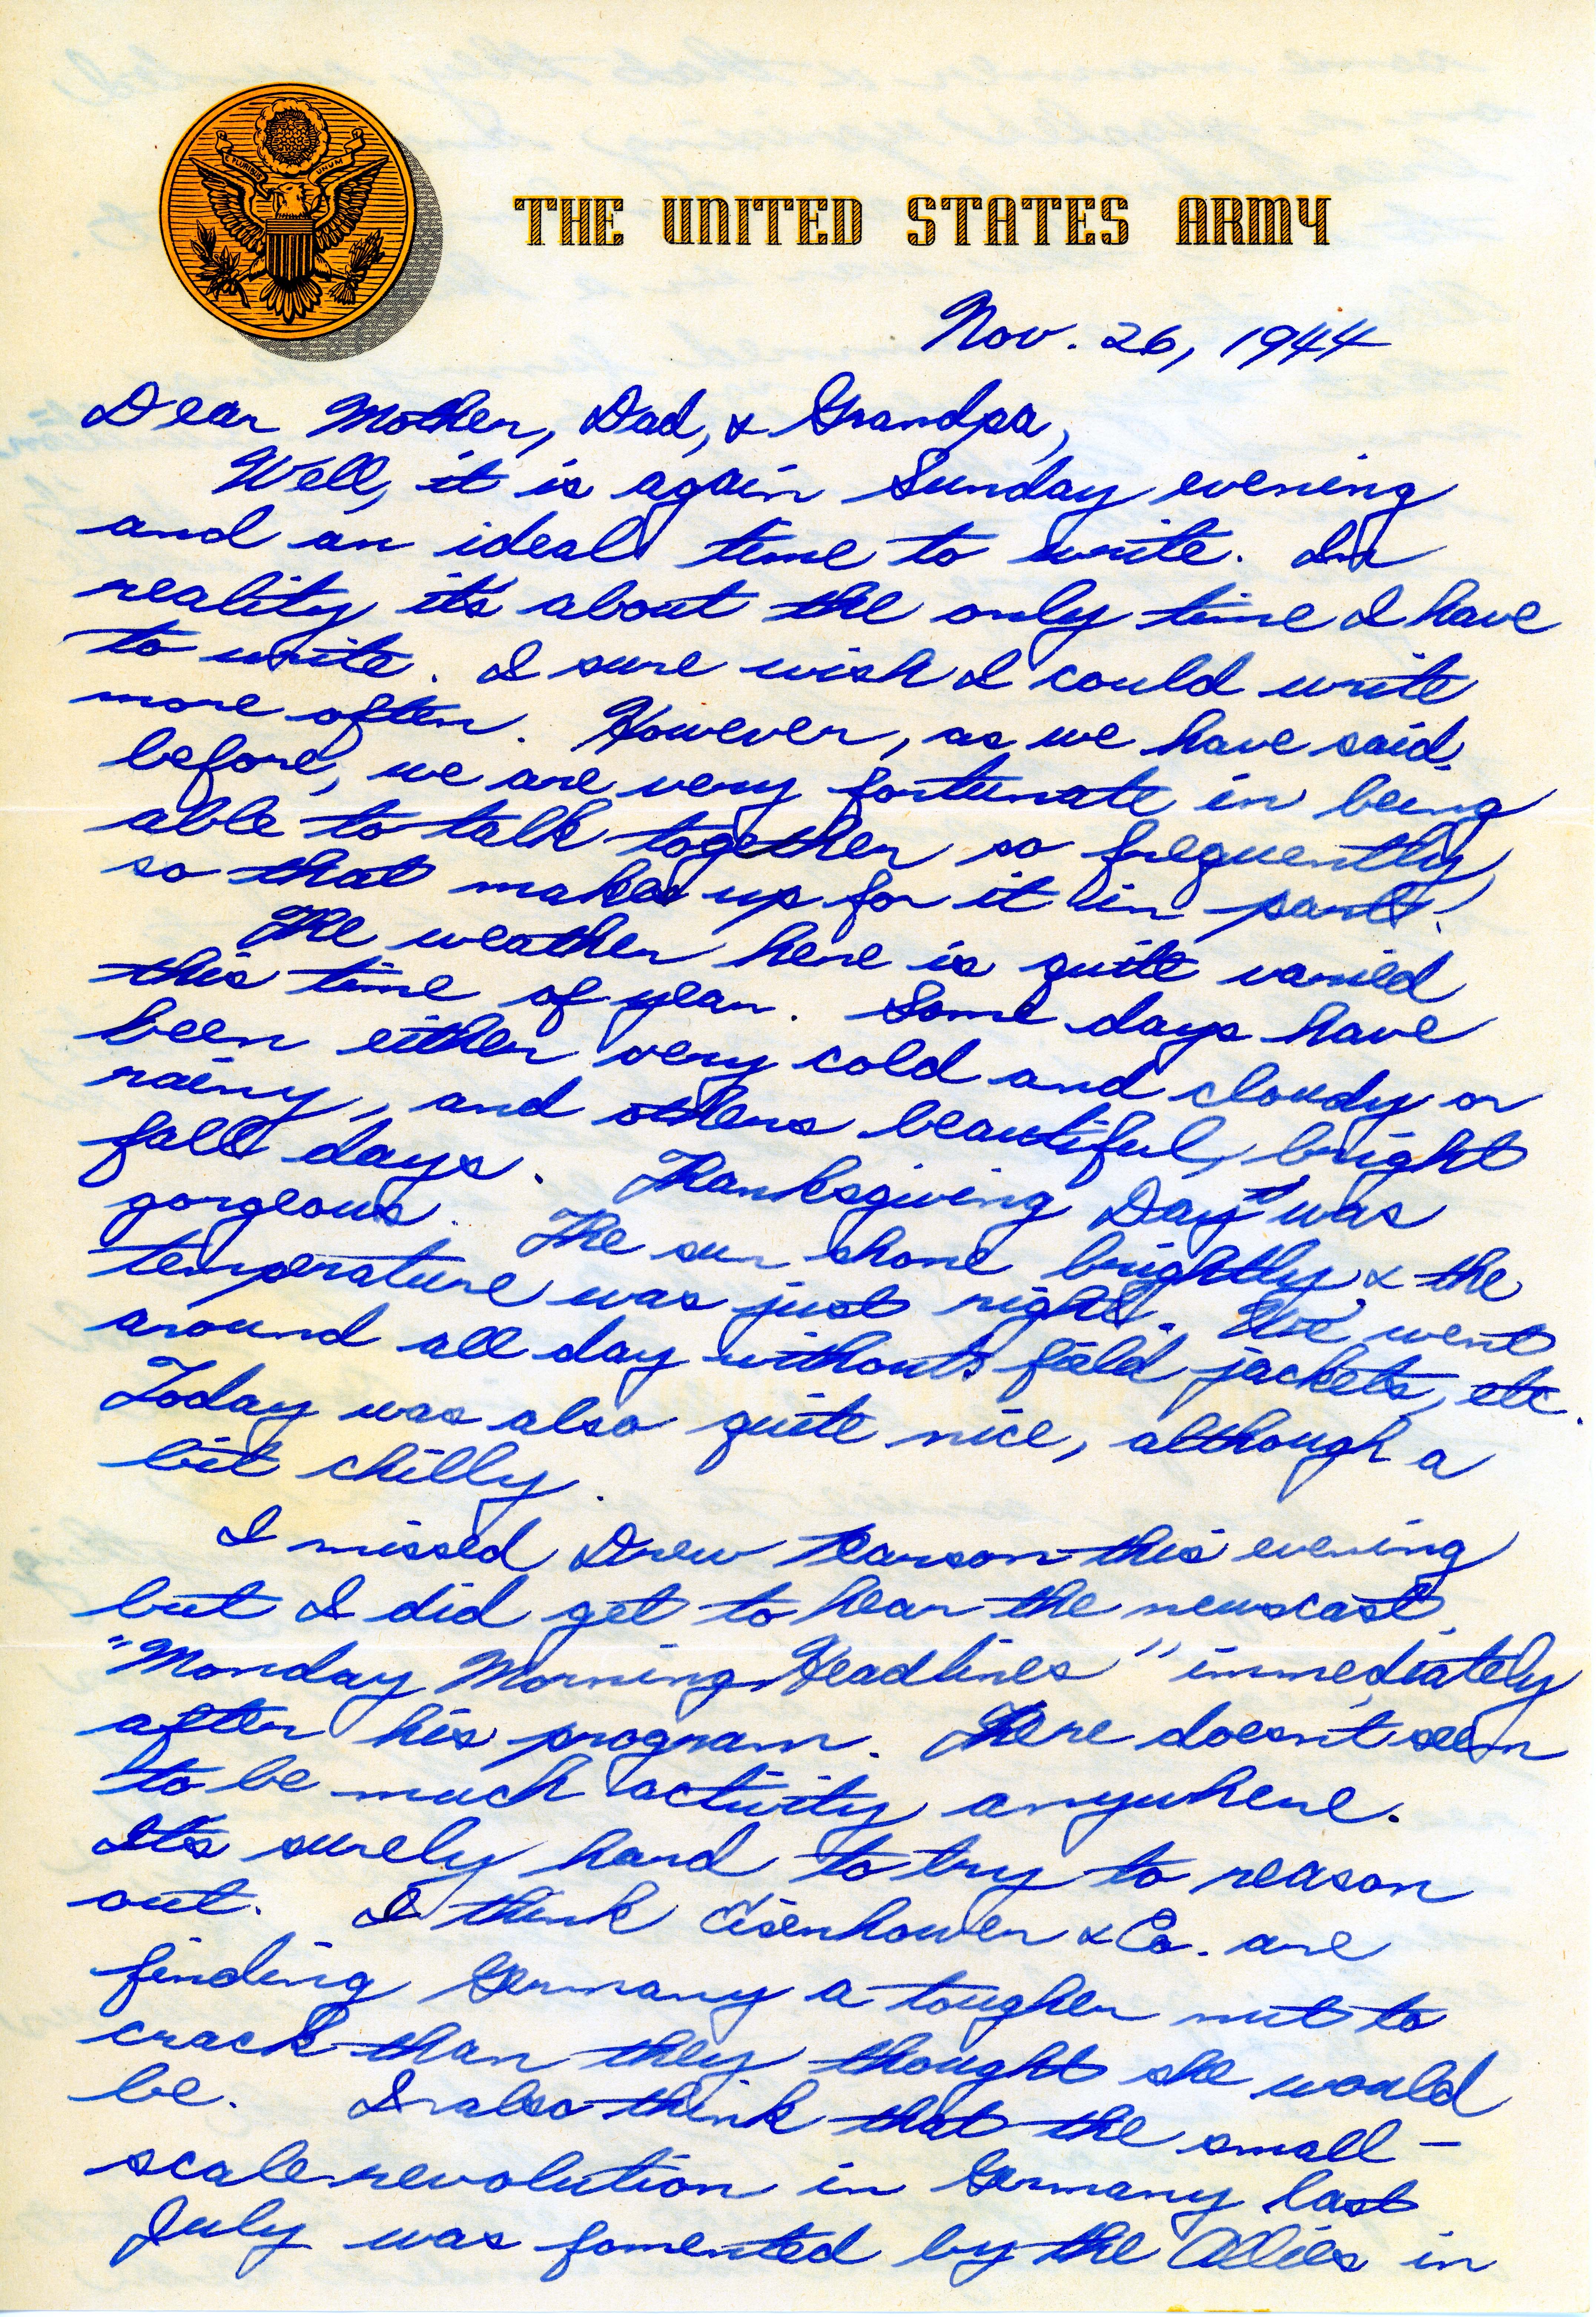 E PLURIBUS UNUM
THE UNITED STATES ARMY
Nov. 26, 1944
Dear Mother, Dad, & Grandpa,
Well, it is again Sunday evening
and an ideal time to write. In
reality it's about the only time I have
to write. I sure wish I could write
more often. However, as we have said
before, we are very fortunate in being
able to talk together so frequently,
so that makes up for it in part.
The weather here is quite varied
this time of year. Some days have
been either very cold and cloudy or
rainy, and others beautiful, bright
fall days. Thanksgiving Day was
gorgeous. The sun shone brightly & the
temperature was just right. We went
around all day without field jackets, etc.
Today was also quite nice, although a
bit chilly.
I missed Drew Pearson this evening
but I did get to hear the newscast
"Monday Morning Headlines" immediately
after his program. There doesn't seem
to be much activity anywhere.
It's surely hard to try to reason
out. I think Eisenhower & Co. are
finding Germany a tougher nut to
crack than they thought she would
be. I also think that the small-
scale revolution in Germany last
July was fomented by the Allies in